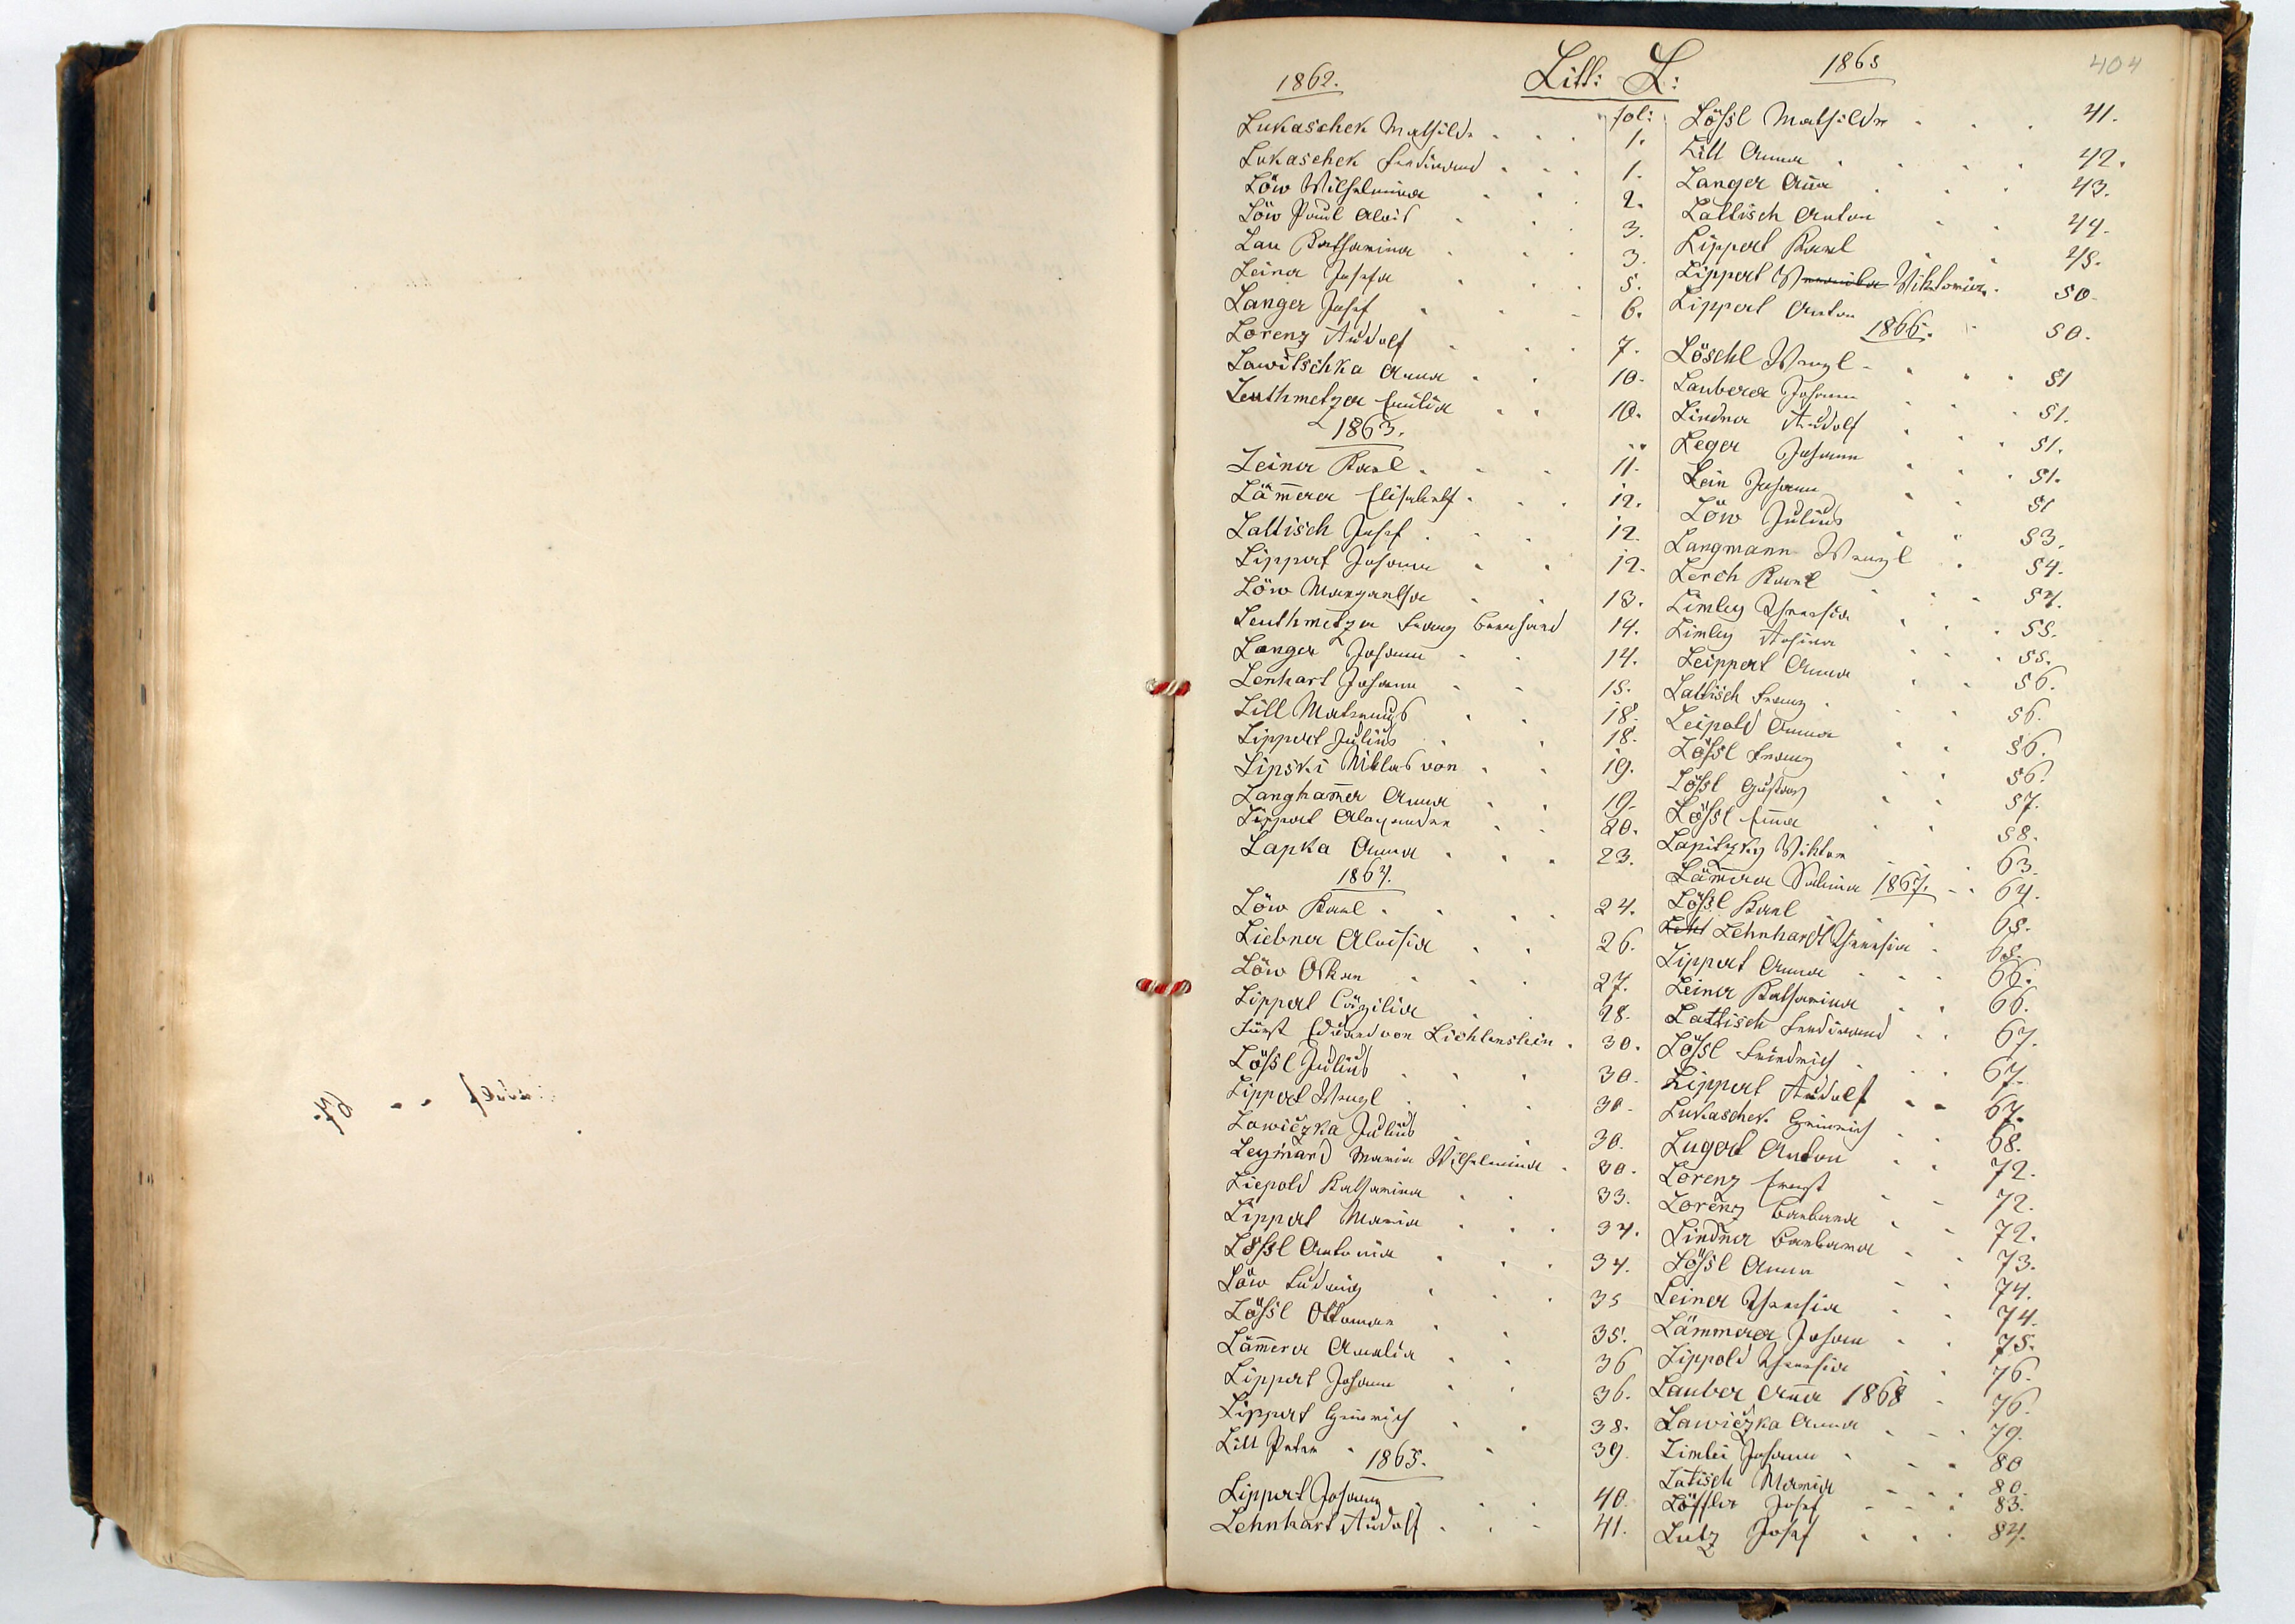 404
1862.
Litt: L:
1865
fol:
Lukaschek Mathilde . . . 1.
Lukaschek Ferdinand . . . 1.
Löw Wilhelmina . . . 2.
Löw Paul Alois . . . 3.
Lau Katharina . . . 3.
Leiner Josefa . . . 5.
Langer Josef . . . 6.
Lorenz Rudolf . . . 7.
Lawitschka Anna . . 10.
Leuthmetzer Emilia . . 10.
1863.
Leiner Karl . . . 11.
Lam̅erer Elisabeth . . . 12.
Lattisch Josef . . . 12.
Lippert Johann . . 12.
Löw Margaretha . . 13.
Leuthmetzer Franz Bernhard 14.
Langer Johann . . 14.
Lenhart Johann . . 15.
Lill . . 18.
Lippert Julius . . 18.
Lipski von . . 19.
Langham̅er Anna . . 19.
Lippert Alexander . . 20.
Lapka Anna . . . 23.
1864.
Löw Karl . . . . 24.
Liebner Aloisia . . 26.
Löw Oskar . . . 27.
Lippert Cäzilia . . 28.
Fürst Eduard von Lichtenstein . 30.
Lößl Julius . . . 30.
Lippert Wenzl . . . 30.
Lawiczka Julius . . 30.
Leymard Maria Wilhelmina . 30.
Liepold Katharina . . 33.
Lippert Maria . . . 34.
Lößl Antonia . . . 34.
Löw Ludwig . . . 35
Lößl Ottomar . . 35.
Läm̅erer Amalia . . 36
Lippert Johann . . 36.
Lippert Heinrich . . 38.
Lill Peter . . 39.
1865.
Lippert Johann . . . 40.
Lehnhart Rudolf . . . 41.
Lößl Mathilde . . . 41.
Lill Anna . . . . 42.
Langer An̅a . . . 43.
Lattisch Anton . . 44.
Lippert Karl . . 45.
Lippert Viktoria . 50.
Lippert Anton . 50.
1866.
Löschl Wenzl . . . . 51
Lauberer Johann . . . 51.
Lindner Rudolf . . 51.
Leger Johann . . . 51.
Lein Johann . . 51
Löw Julius . . 53.
Langmann Wenzl . 54.
Lerch Karl . . . 54.
Limley Theresia . . . 55.
Limley Rosina . . . 55.
Leippert Anna . . 56.
Lattisch Franz . . . 56.
Leipold Anna . . 56.
Lößl Franz . . 56.
Lößl Gustav . . 57.
Lößl Em̅a . . 58.
Lapitzky Viktor . . . 63.
Läm̅erer Salina 1867. . . 64.
Lößl Karl . . 65.
Lehnhardt Theresia . 65.
Lippert Anna . . . 66.
Leiner Katharina . . 66.
Lattisch Ferdinand . . 67.
Lößl Friedrich . . . 67.
Lippert Rudolf . . 67.
Lukaschek Heinrich . . 68.
Lugert Anton . . 72.
Lorenz Ernst . . 72.
Lorenz Barbara . . 72.
Lindner Barbara . . 73.
Lößl Anna . . 74.
Leiner Theresia . . 74.
Lämmerer Johann . . 75.
Lippold Theresia . . 76.
Lauber An̅a 1868 . 76.
Lawiczka Anna . . . 79.
Limlei Johann . . . 80
Latisch Maria . . . 80.
Löffler Josef . . . 83.
Lutz Josef . . . 84.